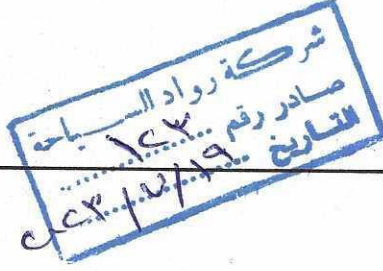 شركة رواد السياحة
صادر رقم ١٢٣
التاريخ ١٩/٧/٢٠٢٣